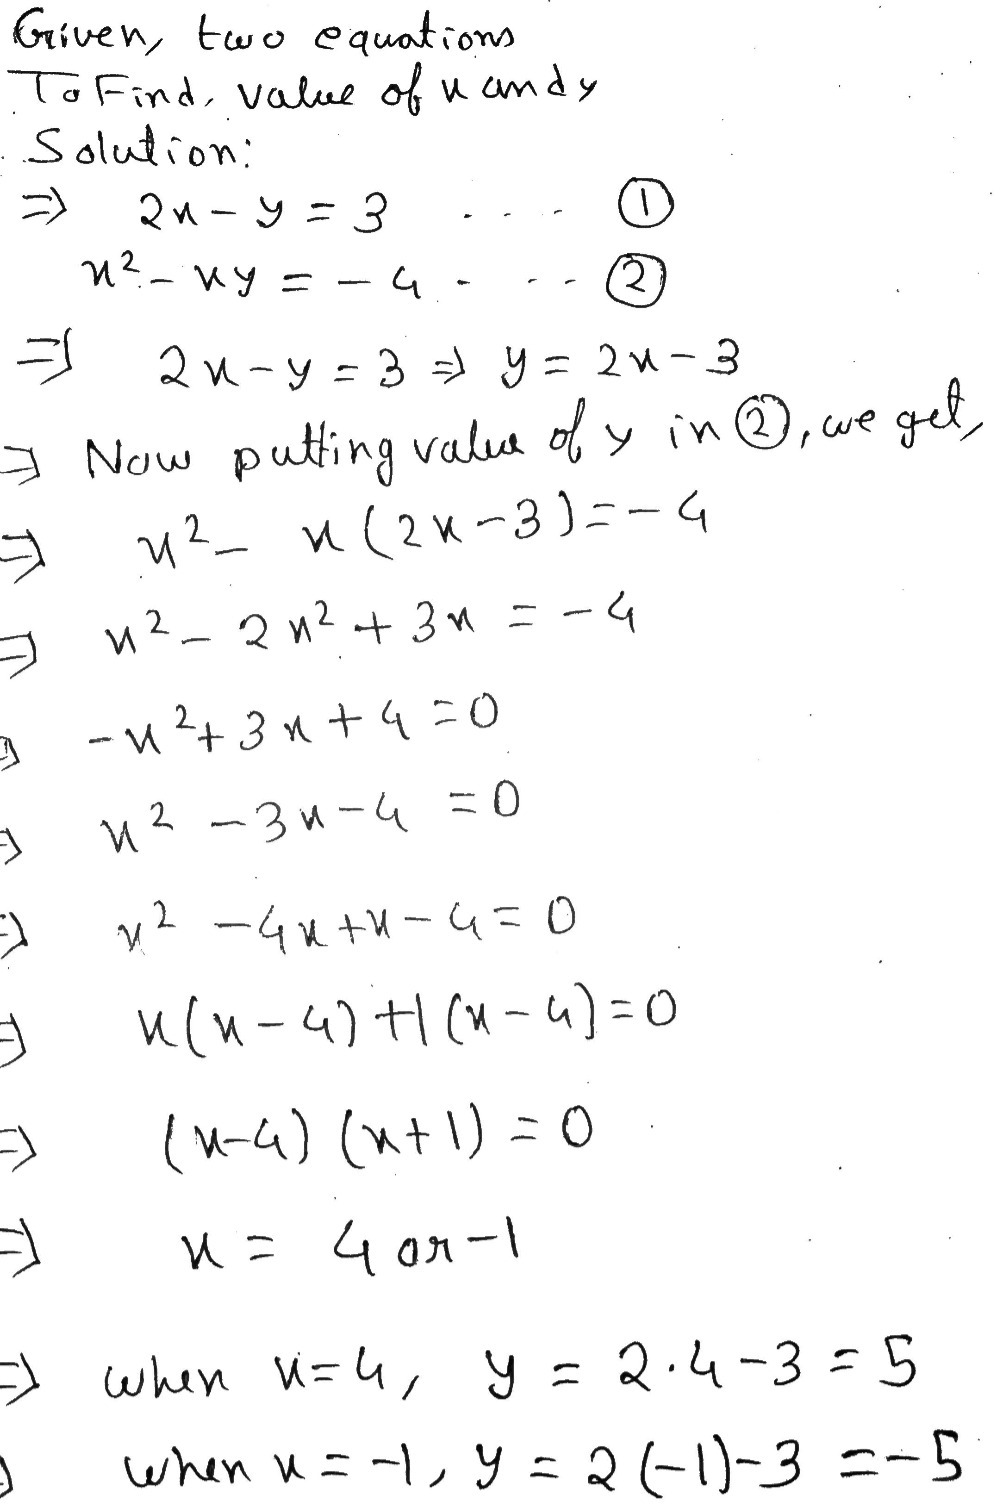 Given, two equations
To Find, value of x and y
Solution:
⇒ 2x - y = 3 .... ①
x² - xy = -4 - ... ②
⇒ 2x - y = 3 ⇒ y = 2x - 3
⇒ Now putting value of y in ②, we get,
⇒ x² - x(2x-3) = -4
⇒ x² - 2x² + 3x = -4
⇒ -x² + 3x + 4 = 0
⇒ x² - 3x - 4 = 0
⇒ x² - 4x + x - 4 = 0
⇒ x(x-4) + 1(x-4) = 0
⇒ (x-4) (x+1) = 0
⇒ x = 4 or -1
⇒ when x = 4, y = 2·4 - 3 = 5
⇒ when x = -1, y = 2(-1) - 3 = -5